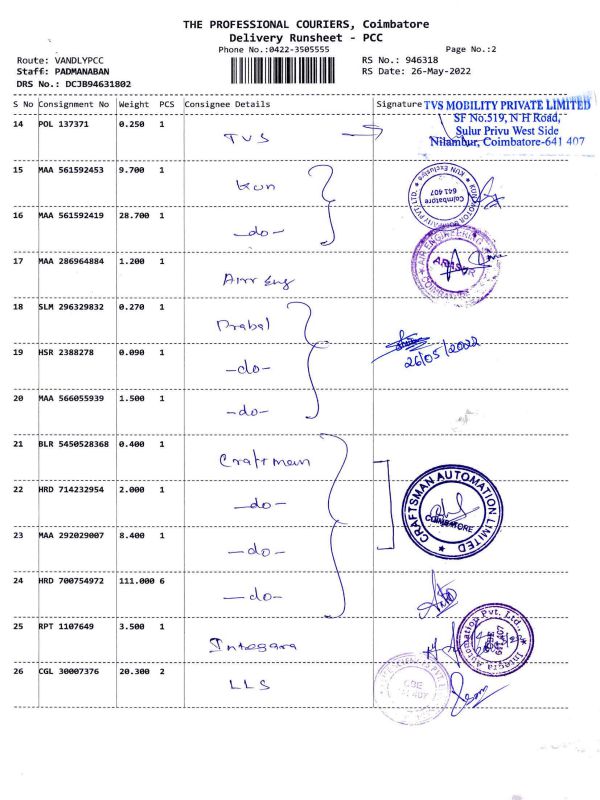 THE PROFESSIONAL COURIERS, Coimbatore
Delivery Runsheet - PCC
Phone No.:0422-3505555
Page No.:2
Route: VANDLYPCC
RS No.: 946318
Staff: PADMANABAN
RS Date: 26-May-2022
DRS No.: DCJB94631802
S No Consignment No Weight PCS Consignee Details Signature
TVS MOBILITY PRIVATE LIMITED
SF No.519, N H Road,
Sulur Privu West Side
Nilambur, Coimbatore-641 407
14 POL 137371 0.250 1 TVS
15 MAA 561592453 9.700 1 Kun
Coimbatore
641 407
16 MAA 561592419 28.700 1 -do-
17 MAA 286964884 1.200 1 Airr Eng
AIR ENGINEERING
COIMBATORE
18 SLM 296329832 0.270 1 Prabal
19 HSR 2388278 0.090 1 -do-
26/05/2022
20 MAA 566055939 1.500 1 -do-
21 BLR 5450528368 0.400 1 Craftmen
22 HRD 714232954 2.000 1 -do-
CRAFTSMAN AUTOMATION LIMITED
COIMBATORE
23 MAA 292029007 8.400 1 -do-
24 HRD 700754972 111.000 6 -do-
25 RPT 1107649 3.500 1 Integara
Integra Automation Pvt. Ltd.,
26 CGL 30007376 20.300 2 LLS
CBE
641 407